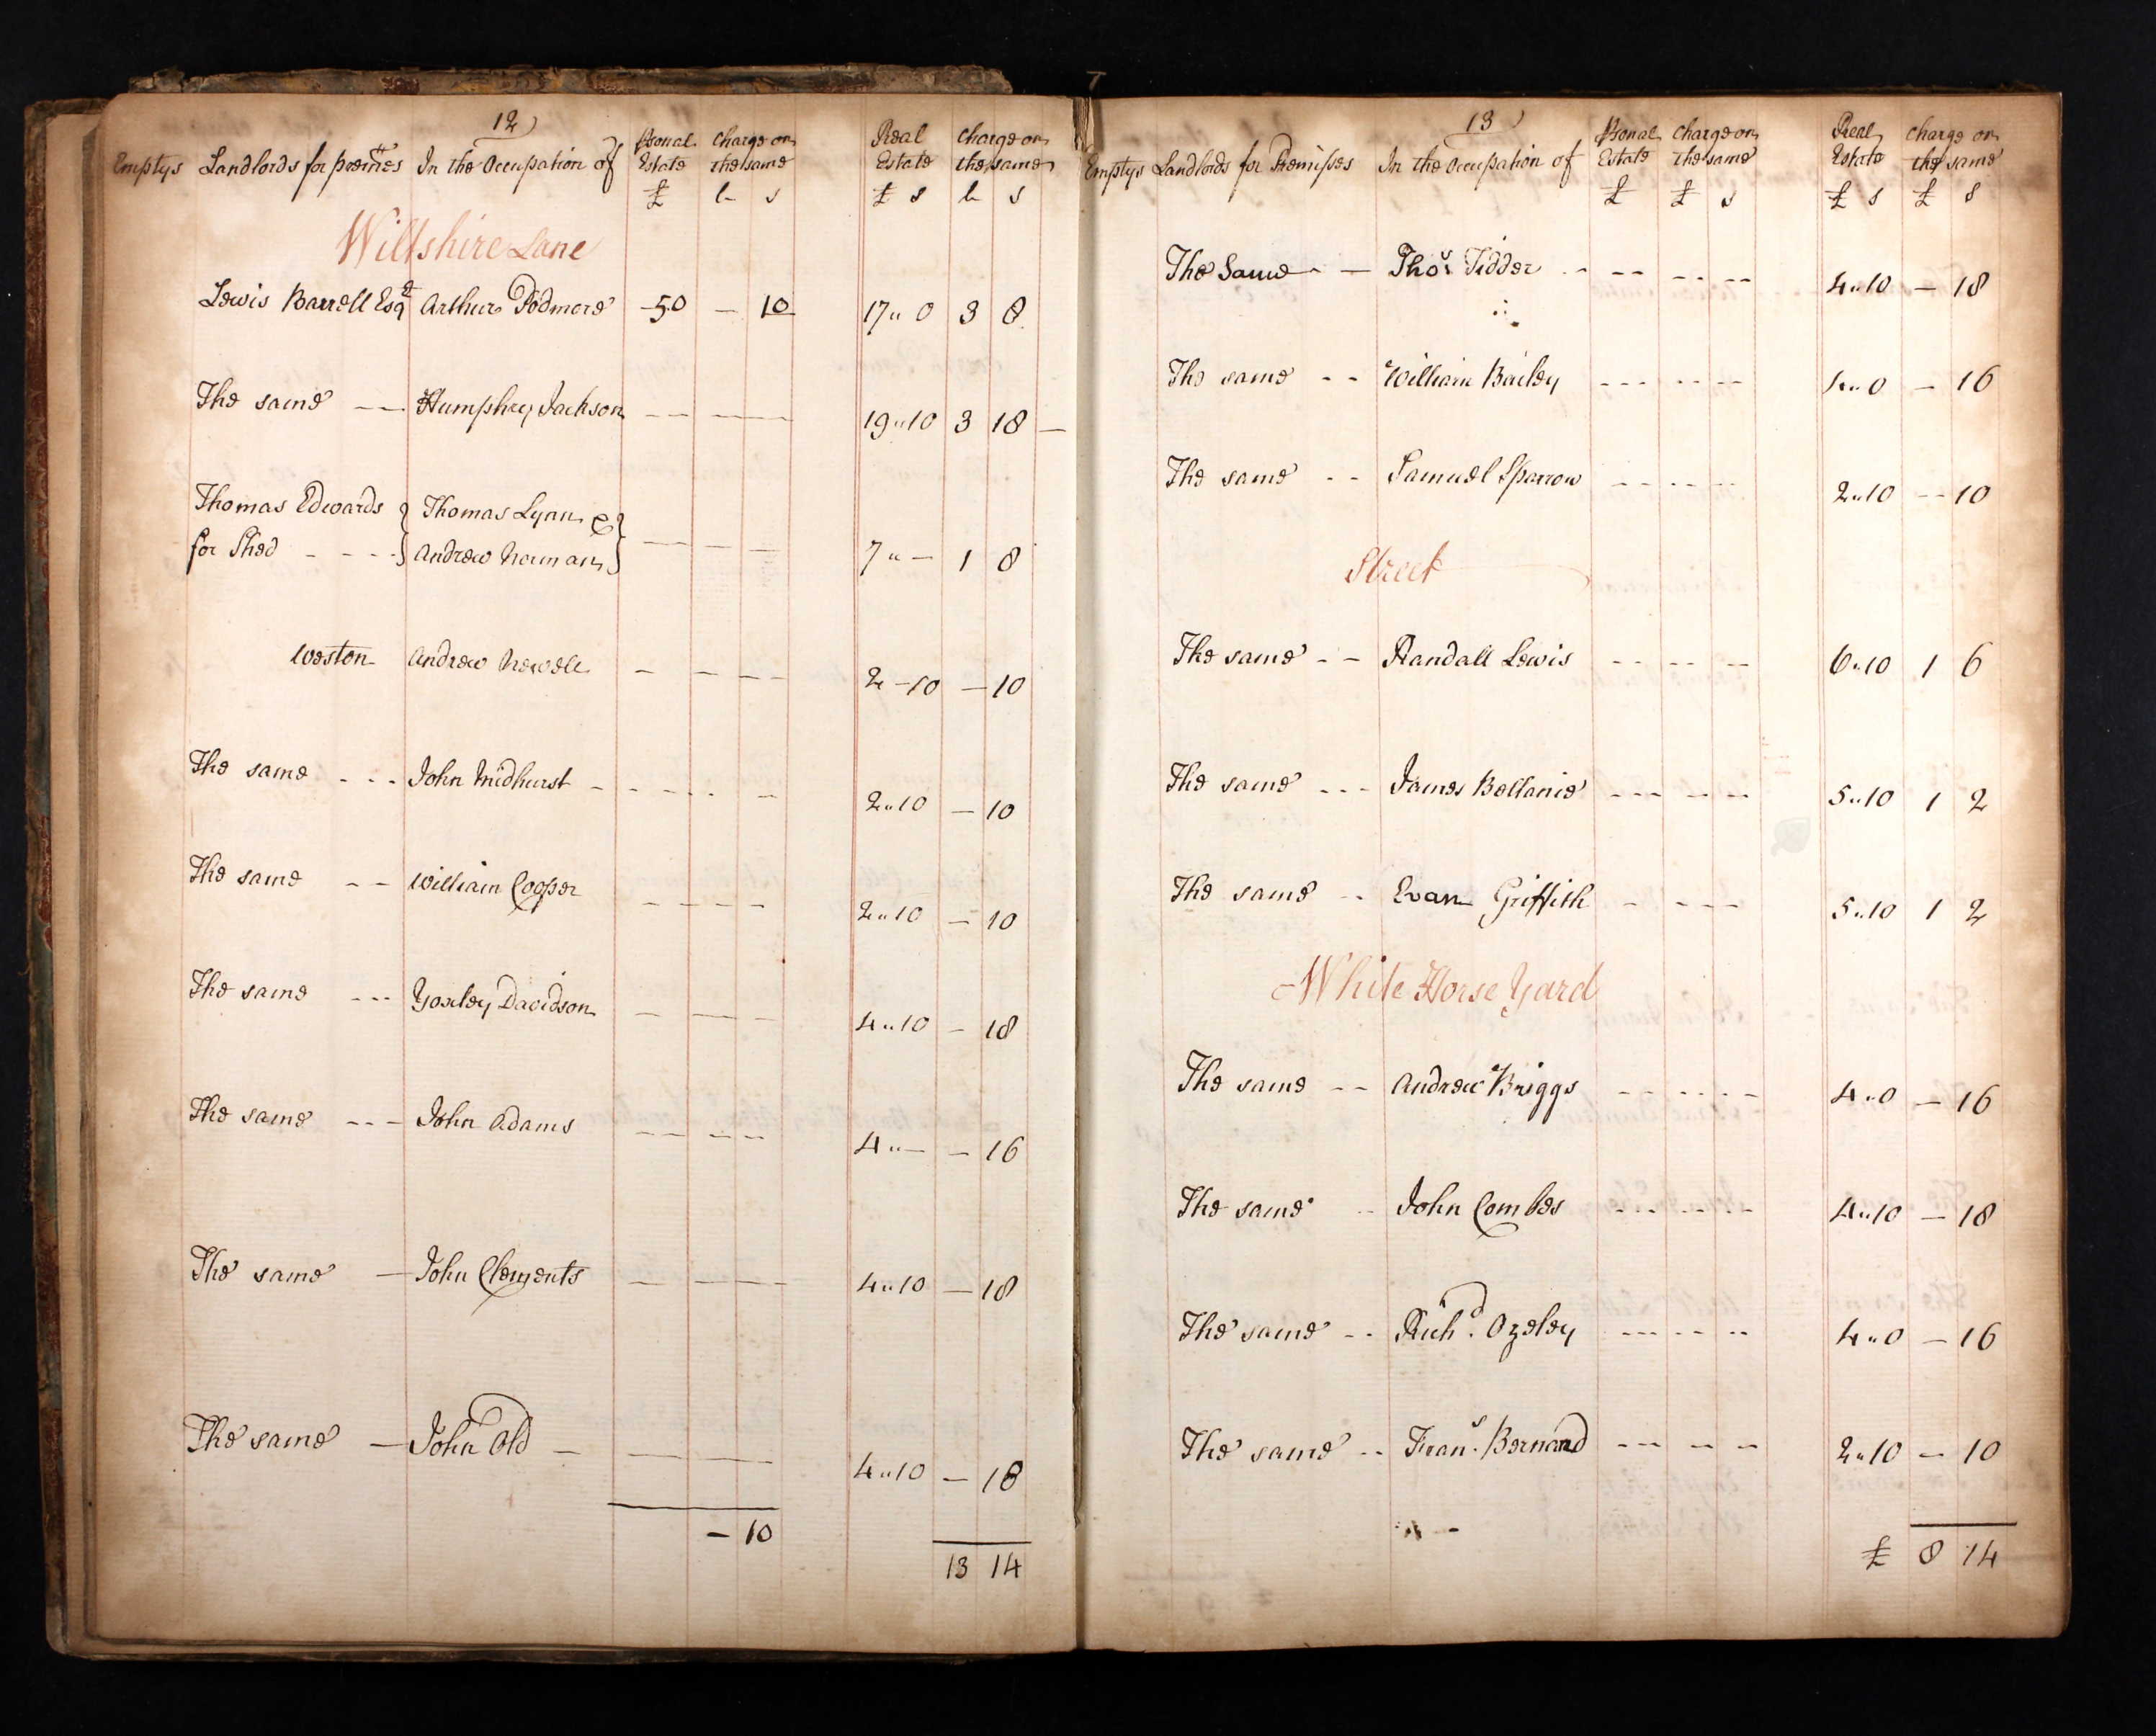 12
Emptys Landlords for prem.tts In the Occupation of Psonal Estate £ Charge on the same l s Real Estate £ s Charge on the same l s
Wiltshire Lane
Lewis Barrell Esq.r Arthur Podmore 50 — 10 17 " 0 3 8
The same — Humphrey Jackson — — — 19 " 10 3 18 —
Thomas Edwards } Thomas Lynn & }
for Shed - - - - } Andrew Norman } — — — 7 " — 1 8
Weston Andrew Newell — — — 2 — 10 — 10
The same - - - John Midhurst - - - - - 2 " 10 — 10
The same - - William Cooper - - - - 2 " 10 — 10
The same - - - Yoxley Davidson — — — 4 " 10 — 18
The same - - - John Adams - - - - 4 " — — 16
The same — John Clements — — — 4 " 10 — 18
The same — John Old — — — 4 " 10 — 18
— 10
13 14
13
Emptys Landlords for Premisses In the Occupation of Psonal Estate £ Charge on the same £ s Real Estate £ s Charge on the same £ s
The Same - — Tho.s Tidder - - - - - - 4 " 10 — 18
The same - - William Bailey - - - - - - 4 " 0 — 16
The same - - Samuel Sparrow - - - - - 2 " 10 - - 10
Street
The same - - Randall Lewis - - - - - 6 " 10 1 6
The same - - - James Bellanie - - - - - - 5 " 10 1 2
The same - - Evan Griffith - - - - 5 " 10 1 2
White Horse Yard
The same - - Andrew Briggs - - - - - - 4 " 0 — 16
The same - - John Combes - - - - - - 4 " 10 — 18
The same - - Rich.d Ozeley - - - - - - - 4 " 0 — 16
The same - - Fran.s Bernard - - - - - - 2 " 10 — 10
£ 8 14